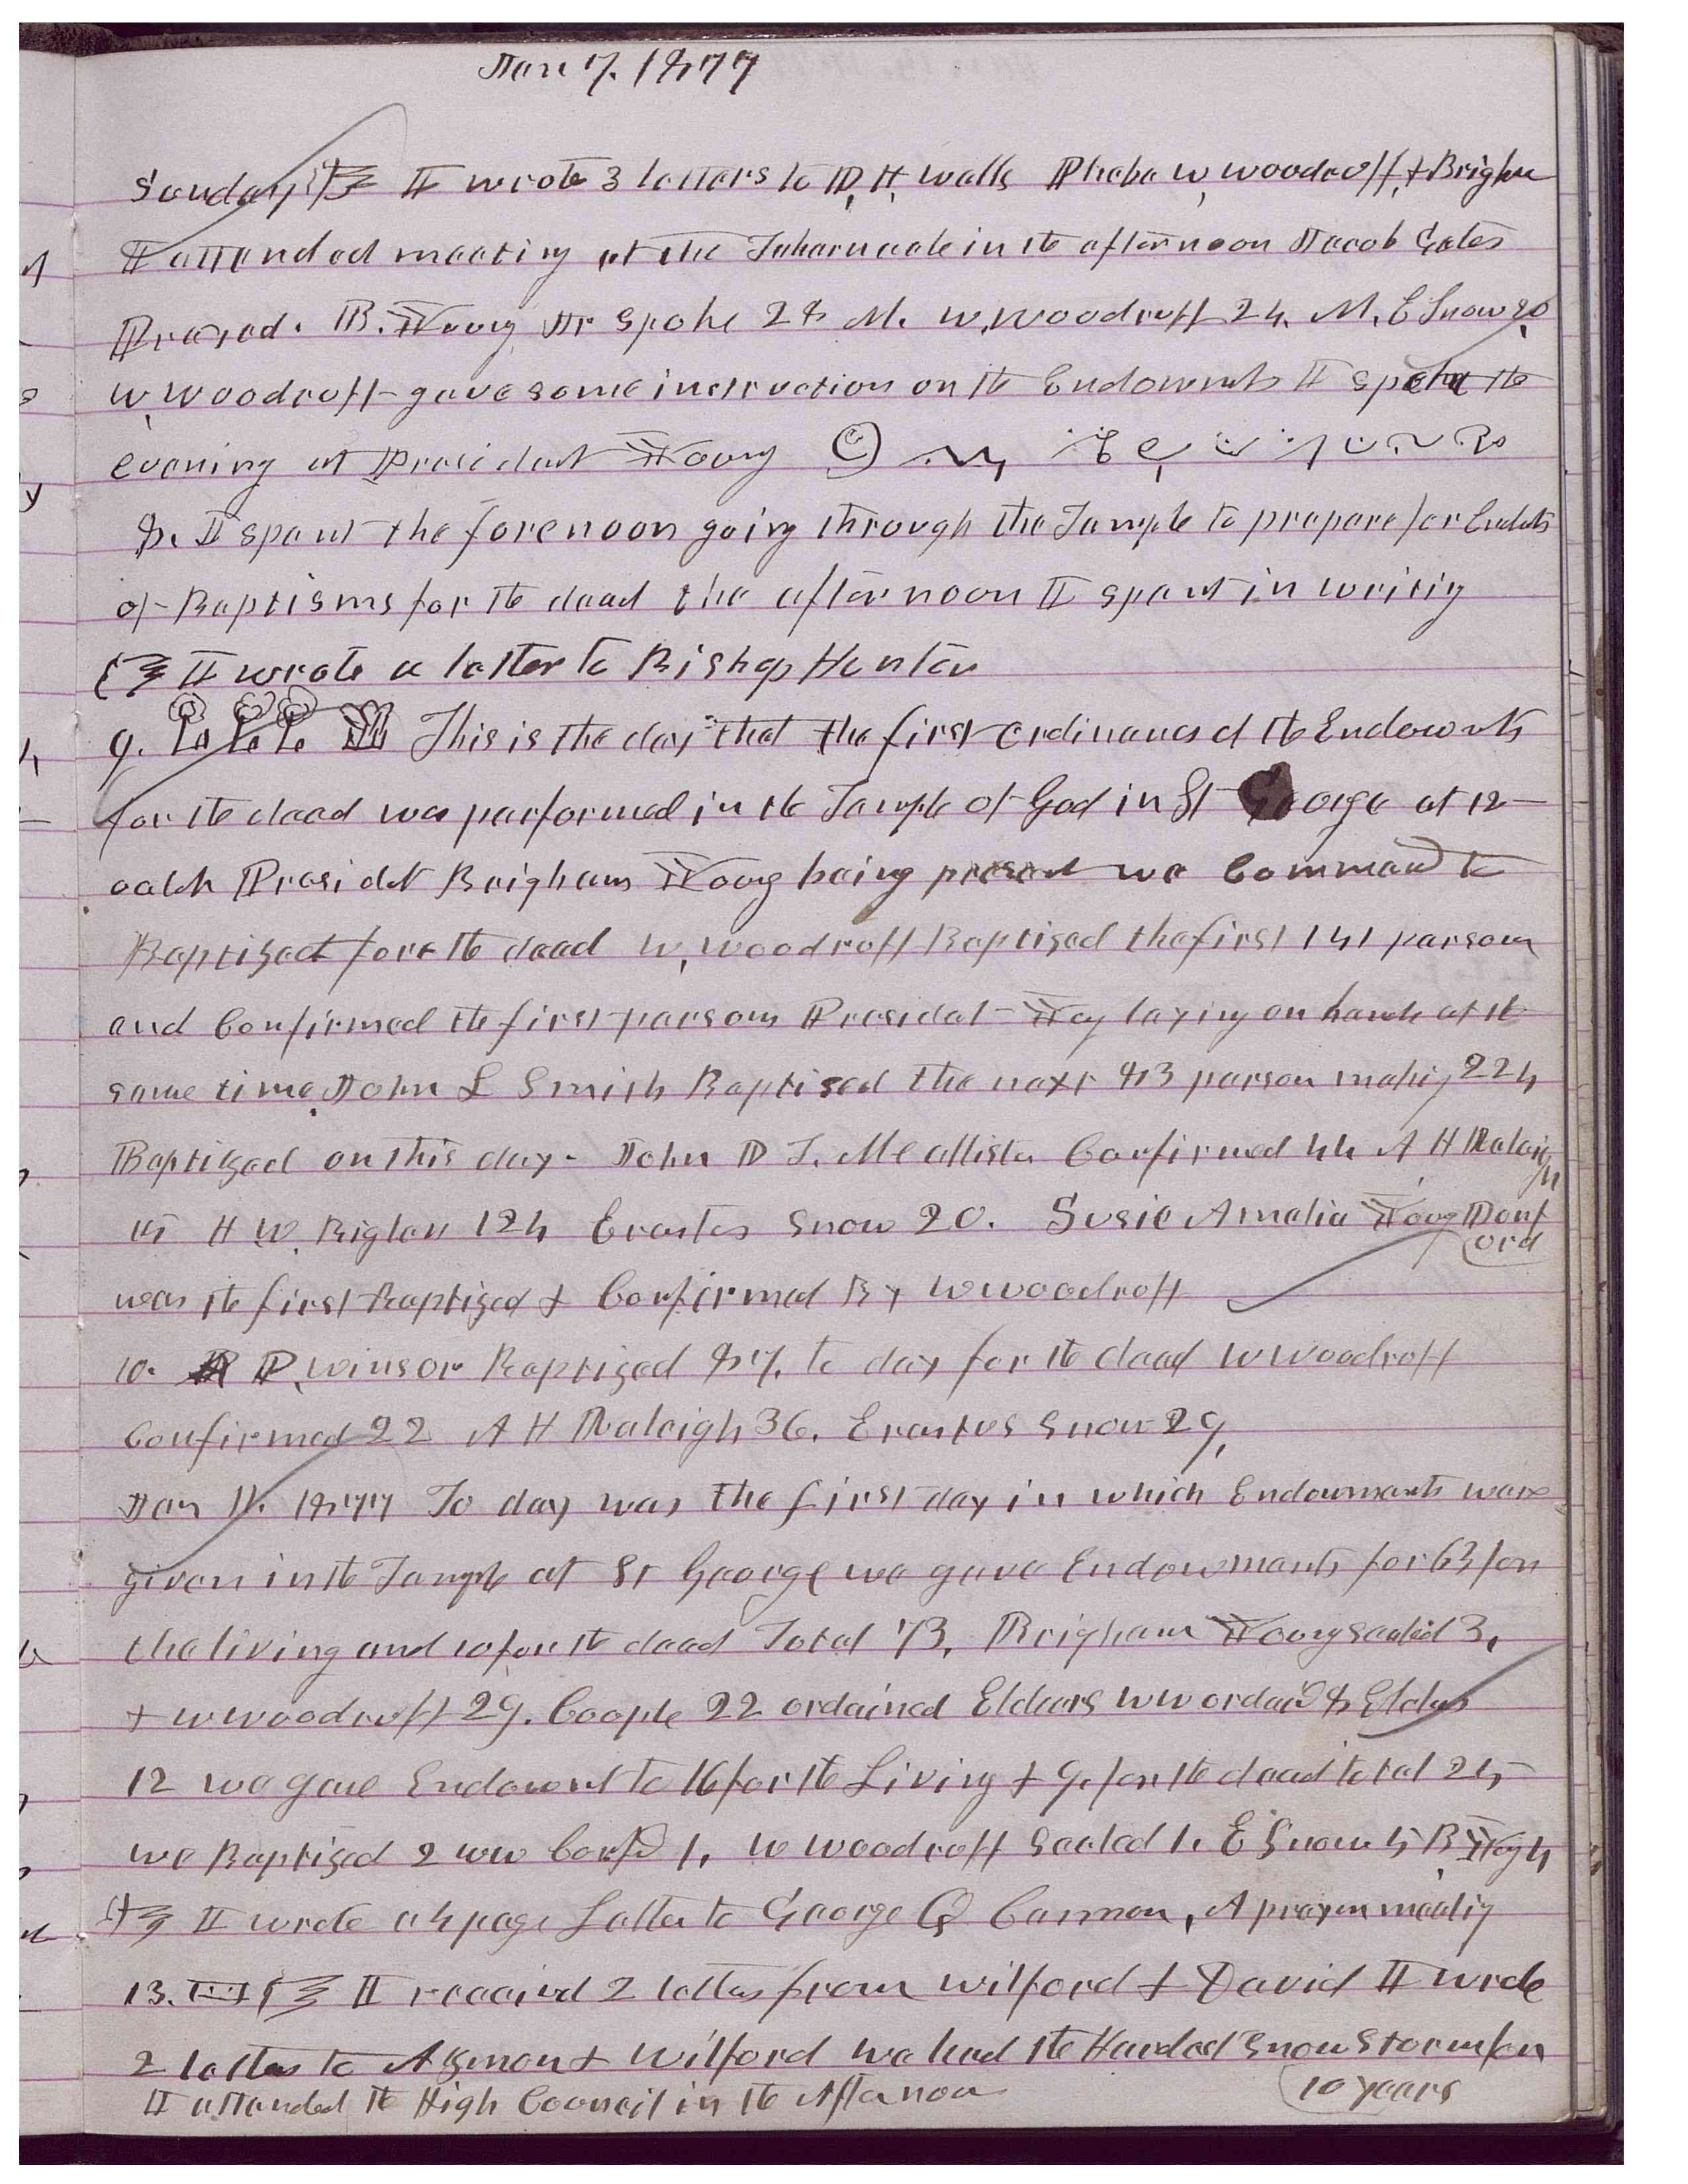 Jan 7. 1877
Sunday I wrote 3 letters to D, H, wells Phebe W, Woodruff, & Brigham
I attended meeting at the Tabernacle in the afternoon Jacob Gates
Prayed. B. Young Jr spoke 28 M. W, Woodruff 24, M, E Snow 20
W, Woodruff gave some instruction on the Endowmts I spent the
evening at President Young
8. I spent the forenoon going through the Temple to prepare for
of Baptisms for the dead the afternoon I spent in writing
I wrote a letter to Bishop Hunter
9. This is the day that the first ordinances of the Endowmts
for the dead was performed in the Temple of God in St George at 12
oclok Presidet Brigham Young being present we Commencd to
Baptized for the dead W, Woodruff Baptized the first 141 person
and Confirmed the first persons Presidet Yog laying on hands at the
same time, John L Smith Baptised the next 83 person making 224
Baptized on this day. John D T. McAllister Confirmed 44 A H Raleigh
H W. Bigler 124 Erastus Snow 20. Susie Amelia Young Dunford
was the first Baptized & Confirmed By W Woodruff
10. P, Winsor Baptized 87, to day for the dead W Woodruff
Confirmed 22 A H Raleigh 36. Erastus Snow 29,
Jan 11. 1877 To day was the first day in which Endowments ware
given in the Temple at St George we gave Endowments for 63 for
the living and 10 for the dead Total 73, Brigham Young sealed 3,
& W Woodruff 29. Couple 22 ordained Elders WW ordaid 8 Elders
12 we gave Endowmt to 16 for the Living & 9, for the dead total 25
we Baptized 2 WW Confd 1, W Woodruff Sealed 1. E Snow 5 B Yog 4
I wrote a 4 page Letter to George Q Cannon, A prayer meetig
13. I receivd 2 letters from Wilford & David I wrote
2 letters to Azmon & Wilford we had the Hardest Snow Storm for
10 years
I attended the High Council in the Afternoon